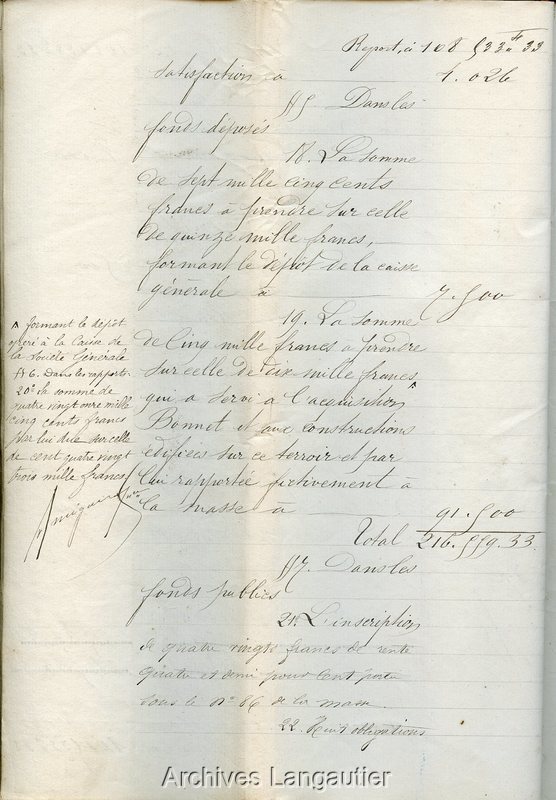 Report, à 108 533 f 33
satisfaction à 1.026
§5. Dans les
fonds déposés
18. La somme
de sept mille cinq cents
francs à prendre sur celle
de quinze mille francs,
formant le dépôt de la caisse
générale à 7.500
19. La somme
de cinq mille francs à prendre
sur celle de dix mille francs ^
qui a servi à l'acquisition
Bonnet et aux constructions
édifiées sur ce terroir et par
lui rapportée fictivement à
la masse à 91.500
Total 216.559.33
§7. Dans les
fonds publics
21. L'inscription
de quatre vingts francs de rente
quatre et demi pour cent porté
sous le n° 86 de la masse
22. Huit obligations
^ formant le dépôt
opéré à la Caisse de
la Société Générale
§6. Dans les rapports.
20° la somme de
quatre vingt onze mille
cinq cents francs
par lui due sur celle
de cent quatre vingt
trois mille francs
Archives Langautier